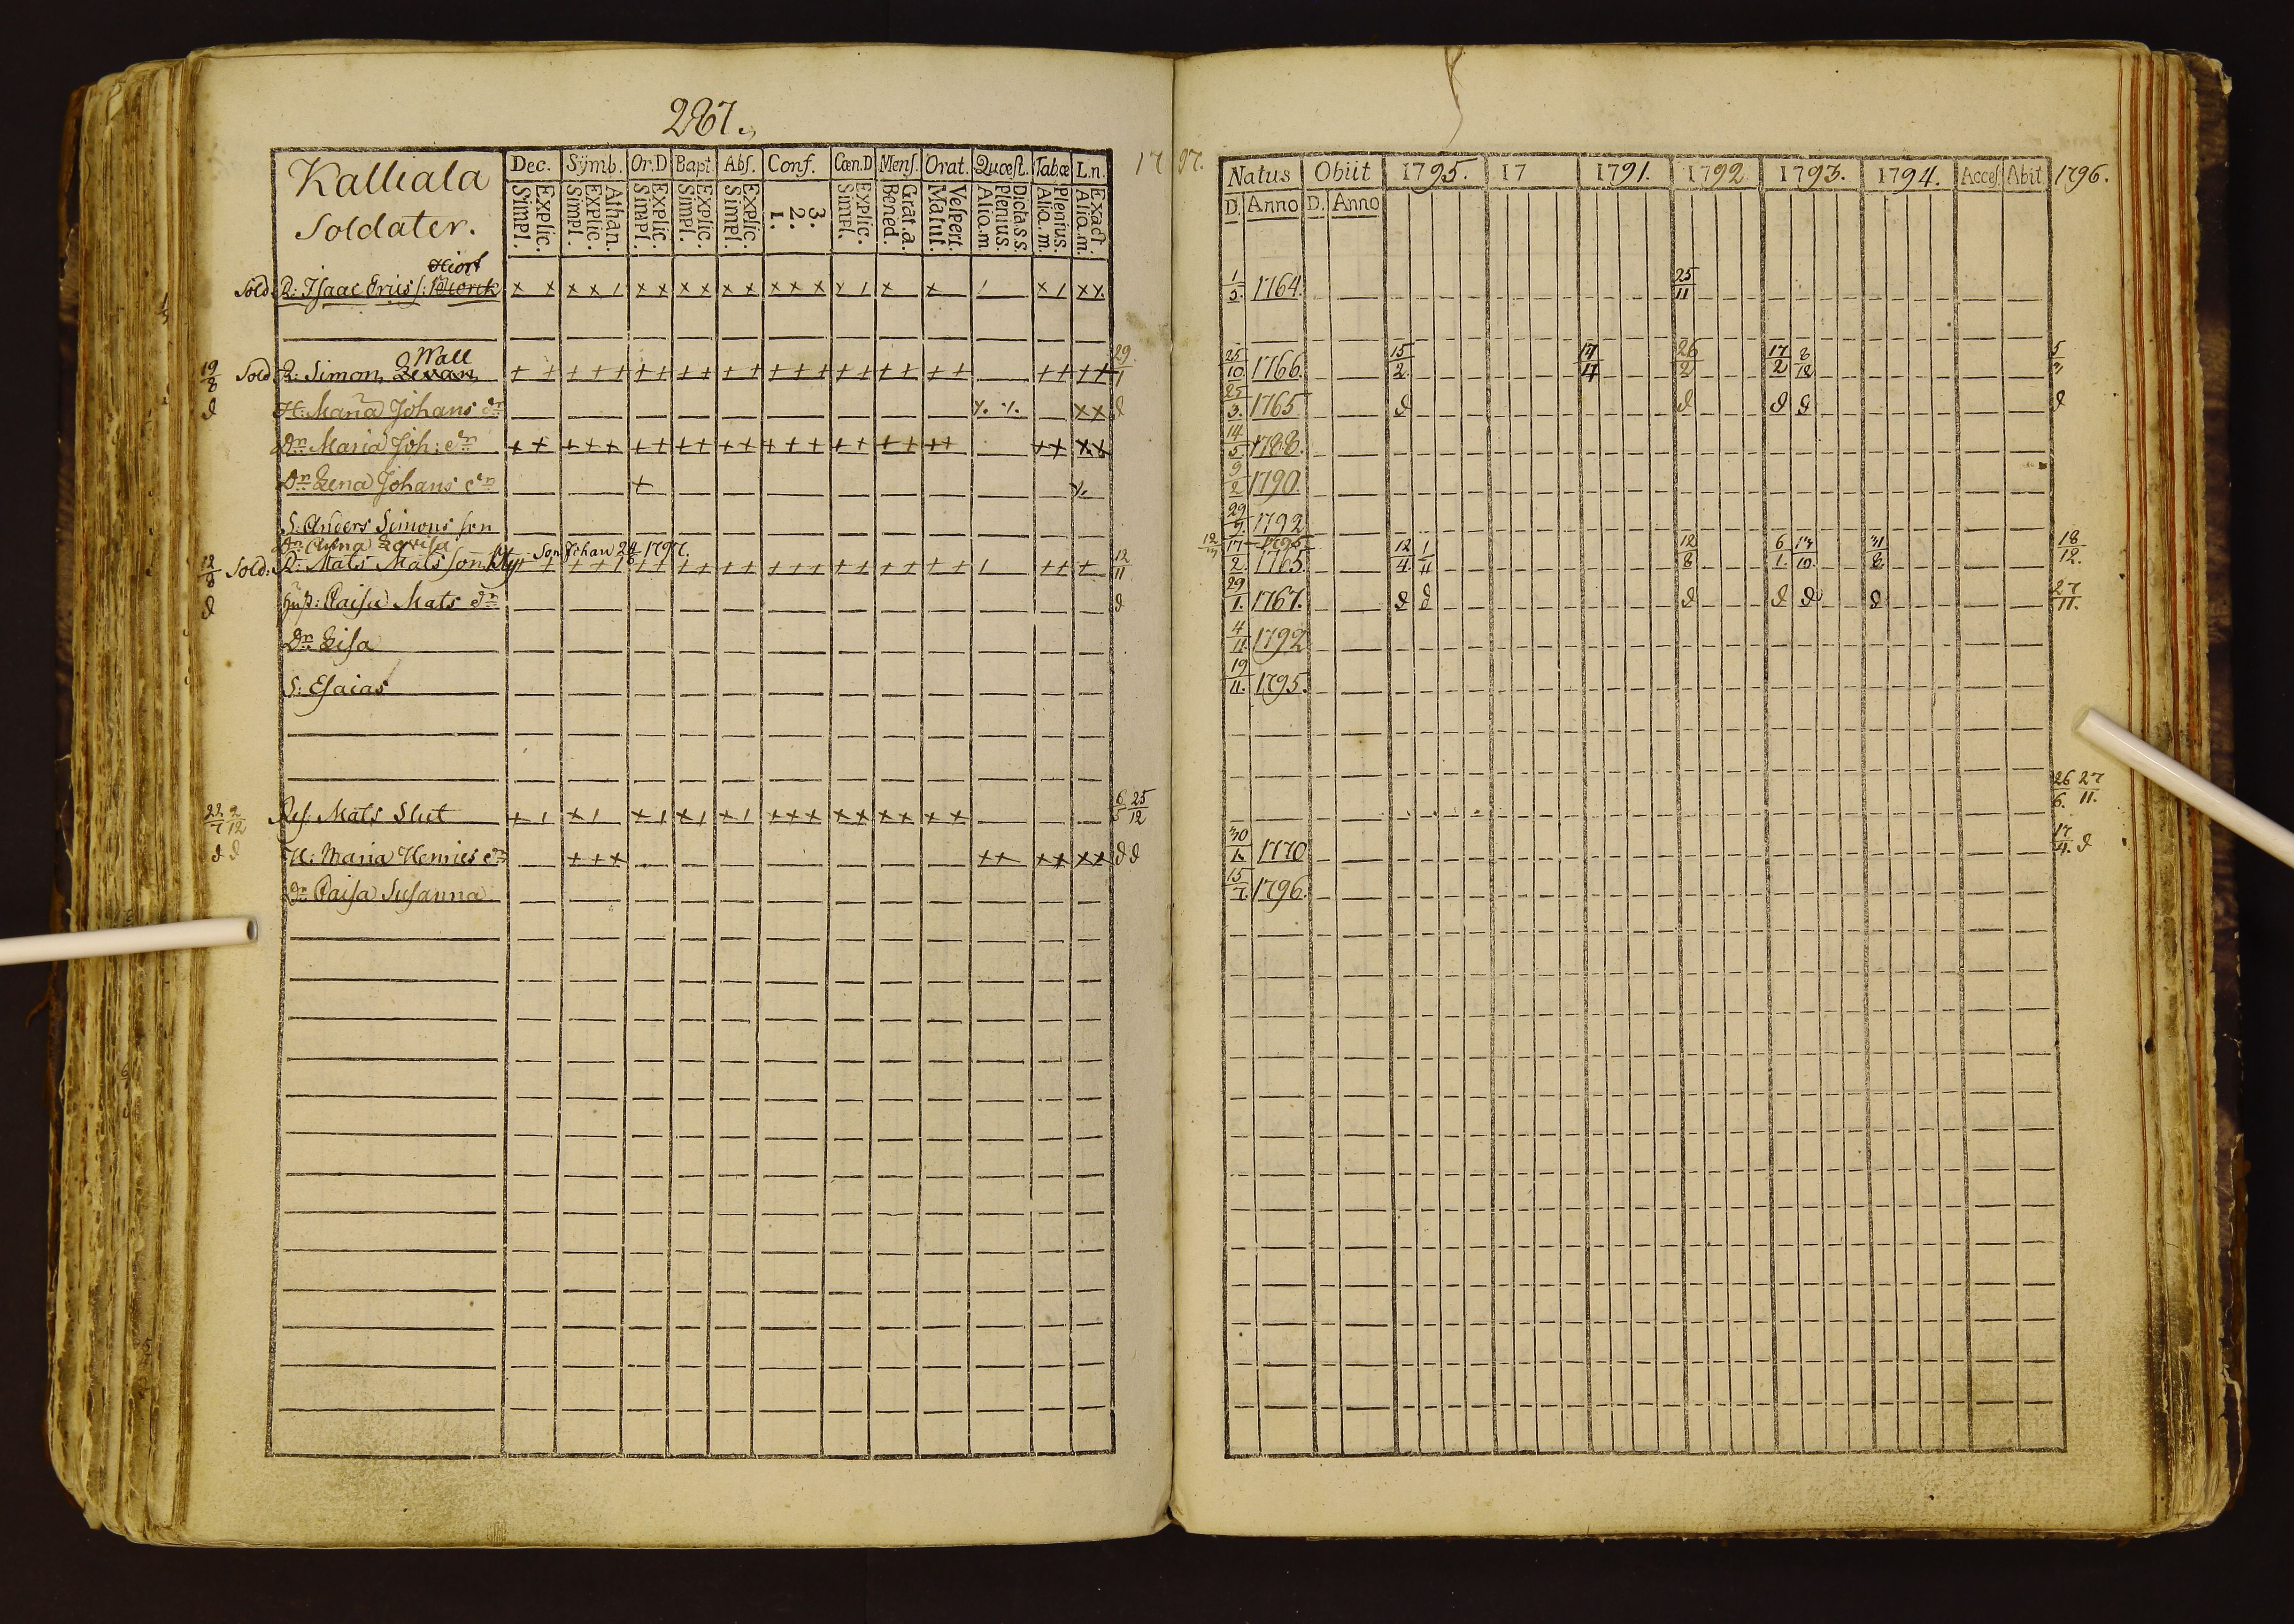 287.
Kalliala
Soldater.
Dec. Symb. Or.D Bapt. Abs. Conf. Cœn.D Mens. Orat. Quœst. Tabœ L.n. 17 97.
Explic. Simpl. Athan. Explic. Simpl. Explic. Simpl. Explic. Simpl. Explic. Simpl. 3. 2. 1. Explic. Simpl. Grat.a. Bened. Vespert. Matut. Dicta.s.s. Plenius. Aliq.m. Plenius. Aliq.m. Exact. Aliq.m.
Hiort
Sold. R: Isaac Erics s: x x x x 1 x x x x x x x x x x 1 x x 1 x 1 x x
Wall
19/8 Sold R: Simon + + + + + + + + + + + + + + + + + + + + + + + + 29/1
H: Maria Johans dr
Dr Maria Joh: dr + + + + + + + + + + + + + + + + + + + + + x x
Dr Lena Johans dr +
S: Anders Simons son
Dr Anna Lovisa Son Johan 24/6 1797.
12/8 Sold: R: Mats Mats son 12/11
Hust: Caisa Mats dr
Dr Lisa
S: Esaias
22/7 2/12 Res. Mats Slut + 1 + 1 + 1 + 1 + 1 + + + + + + + + + 6/5 25/12
H: Maria Henrics dr + + + + + + + x x
Dr Caisa Susanna
Natus Obiit 1795. 17 1791. 1792 1793. 1794. Acces. Abit 1796.
D. Anno D. Anno
1/5. 1764. 25/11
25/10. 1766. 15/2. 17/4 26/2 17/2 8/12
25/3. 1765
14/5 1788.
9/2 1790.
29/7. 1792
1795
17/2. 1765. 12/4. 1/11 12/8 6/1. 13/10. 31/8. 18/12.
29/1. 1767. 27/11.
4/11. 1792
19/11. 1795.
26/6. 27/11.
30/1. 1770 17/4.
15/7. 1796.